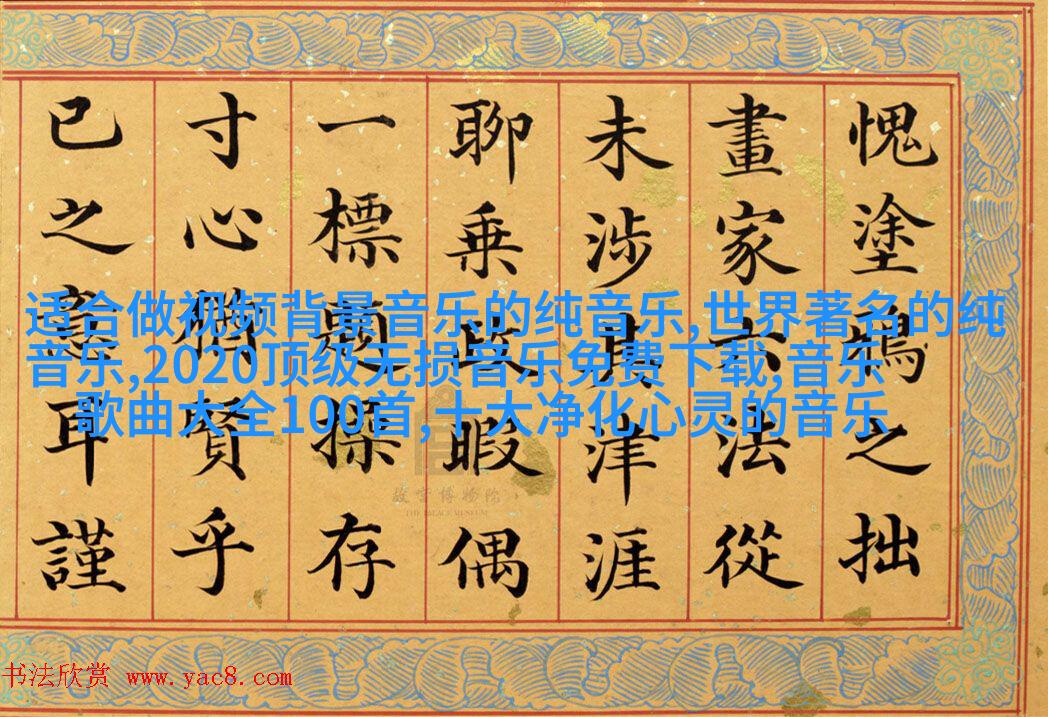 愧塗鴉之拙
畫家六法從
未涉其津涯
聊乘政暇偶
一標題操存
寸心賢乎
已之耳謹
适合做视频背景音乐的纯音乐,世界著名的纯
音乐,2020顶级无损音乐免费下载,音乐
歌曲大全100首,十大净化心灵的音乐
故宫博物院
THE PALACE MUSEUM
书法欣赏 www.yac8.com